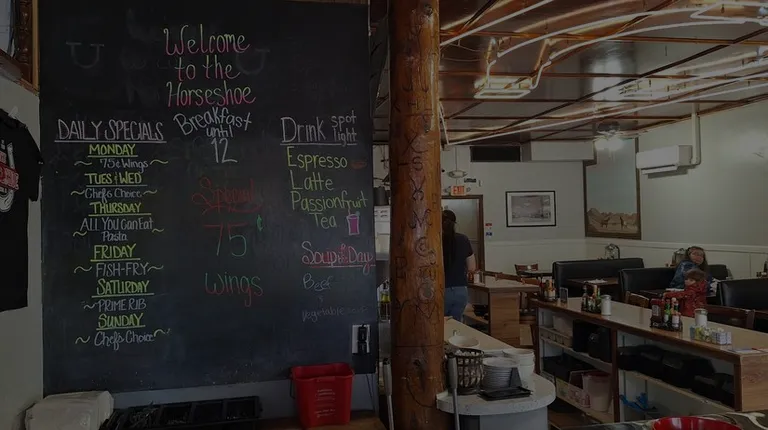 Welcome
to the
Horseshoe
Breakfast
until
12
DAILY SPECIALS
MONDAY
75¢ Wings
TUES & WED
Chefs Choice
THURSDAY
ALL YOU Can Eat
Pasta
FRIDAY
FISH-FRY
SATURDAY
PRIME RIB
SUNDAY
Chefs Choice
Special
75¢
Wings
Drink spot
light
Espresso
Latte
Passionfruit
Tea
Soup of the Day
Beef
&
Vegetable
EXIT